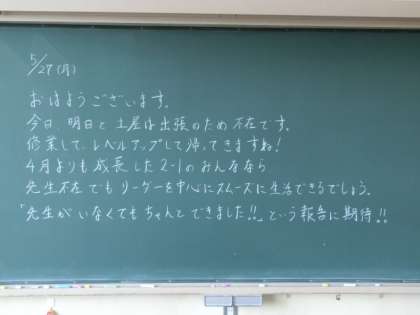 5/27(月)
おはようございます。
今日、明日と土屋は出張のため不在です。
修業して、レベルアップして帰ってきますね!
4月よりも成長した2-1のみんななら
先生不在でもリーダーを中心にスムーズに生活できるでしょう。
「先生がいなくてもちゃんとできました!!」という報告に期待!!